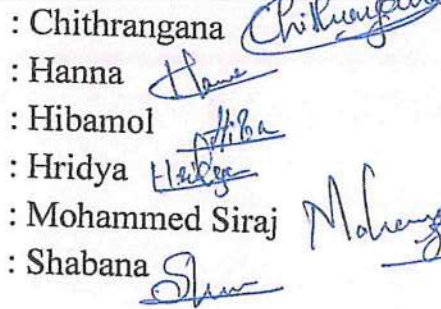 : Chithrangana Chithrangana
: Hanna Hanna
: Hibamol Hiba
: Hridya Hridya
: Mohammed Siraj
: Shabana